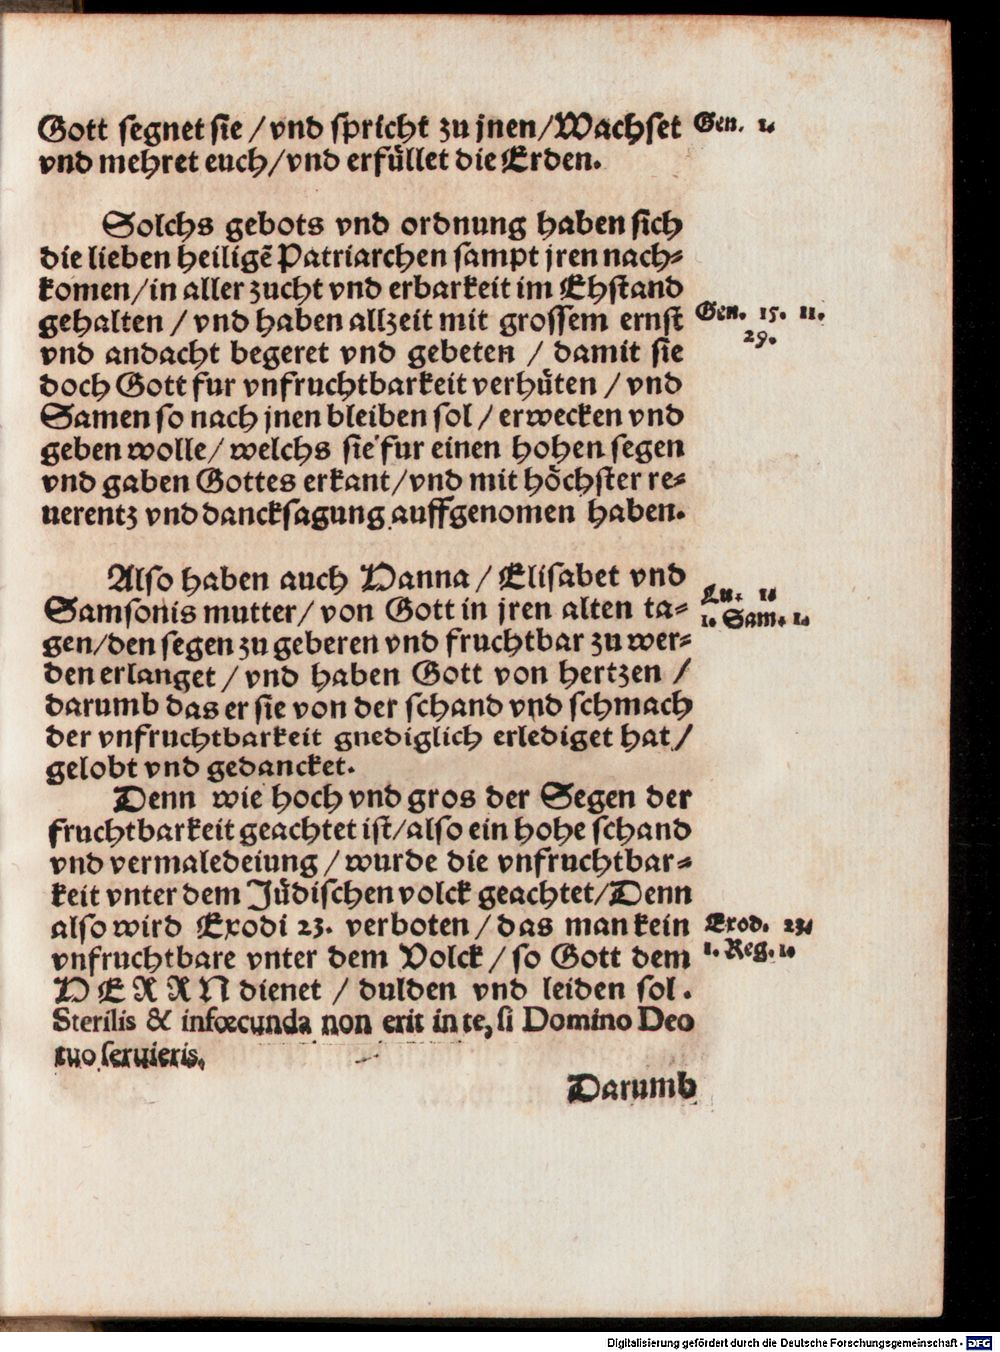 Gott segnet sie / vnd spricht zu jnen / Wachset Gen. 1.
vnd mehret euch / vnd erfüllet die Erden.
Solchs gebots vnd ordnung haben sich
die lieben heiligē Patriarchen sampt jren nach=
komen / in aller zucht vnd erbarkeit im Ehstand
gehalten / vnd haben allzeit mit grossem ernst Gen. 15. 11.
29.
vnd andacht begeret vnd gebeten / damit sie
doch Gott fur vnfruchtbarkeit verhüten / vnd
Samen so nach jnen bleiben sol / erwecken vnd
geben wolle / welchs sie fur einen hohen segen
vnd gaben Gottes erkant / vnd mit höchster re=
uerentz vnd dancksagung auffgenomen haben.
Also haben auch Hanna / Elisabet vnd
Lu. 1.
Samsonis mutter / von Gott in jren alten ta= 1. Sam. 1.
gen / den segen zu geberen vnd fruchtbar zu wer=
den erlanget / vnd haben Gott von hertzen /
darumb das er sie von der schand vnd schmach
der vnfruchtbarkeit gnediglich erlediget hat /
gelobt vnd gedancket.
Denn wie hoch vnd gros der Segen der
fruchtbarkeit geachtet ist / also ein hohe schand
vnd vermaledeiung / wurde die vnfruchtbar=
keit vnter dem Jüdischen volck geachtet / Denn
also wird Exodi 23. verboten / das man kein Exod. 23.
vnfruchtbare vnter dem Volck / so Gott dem 1. Reg. 1.
HERRN dienet / dulden vnd leiden sol.
Sterilis & infœcunda non erit in te, si Domino Deo
tuo seruieris.
Darumb
Digitalisierung gefördert durch die Deutsche Forschungsgemeinschaft - DFG